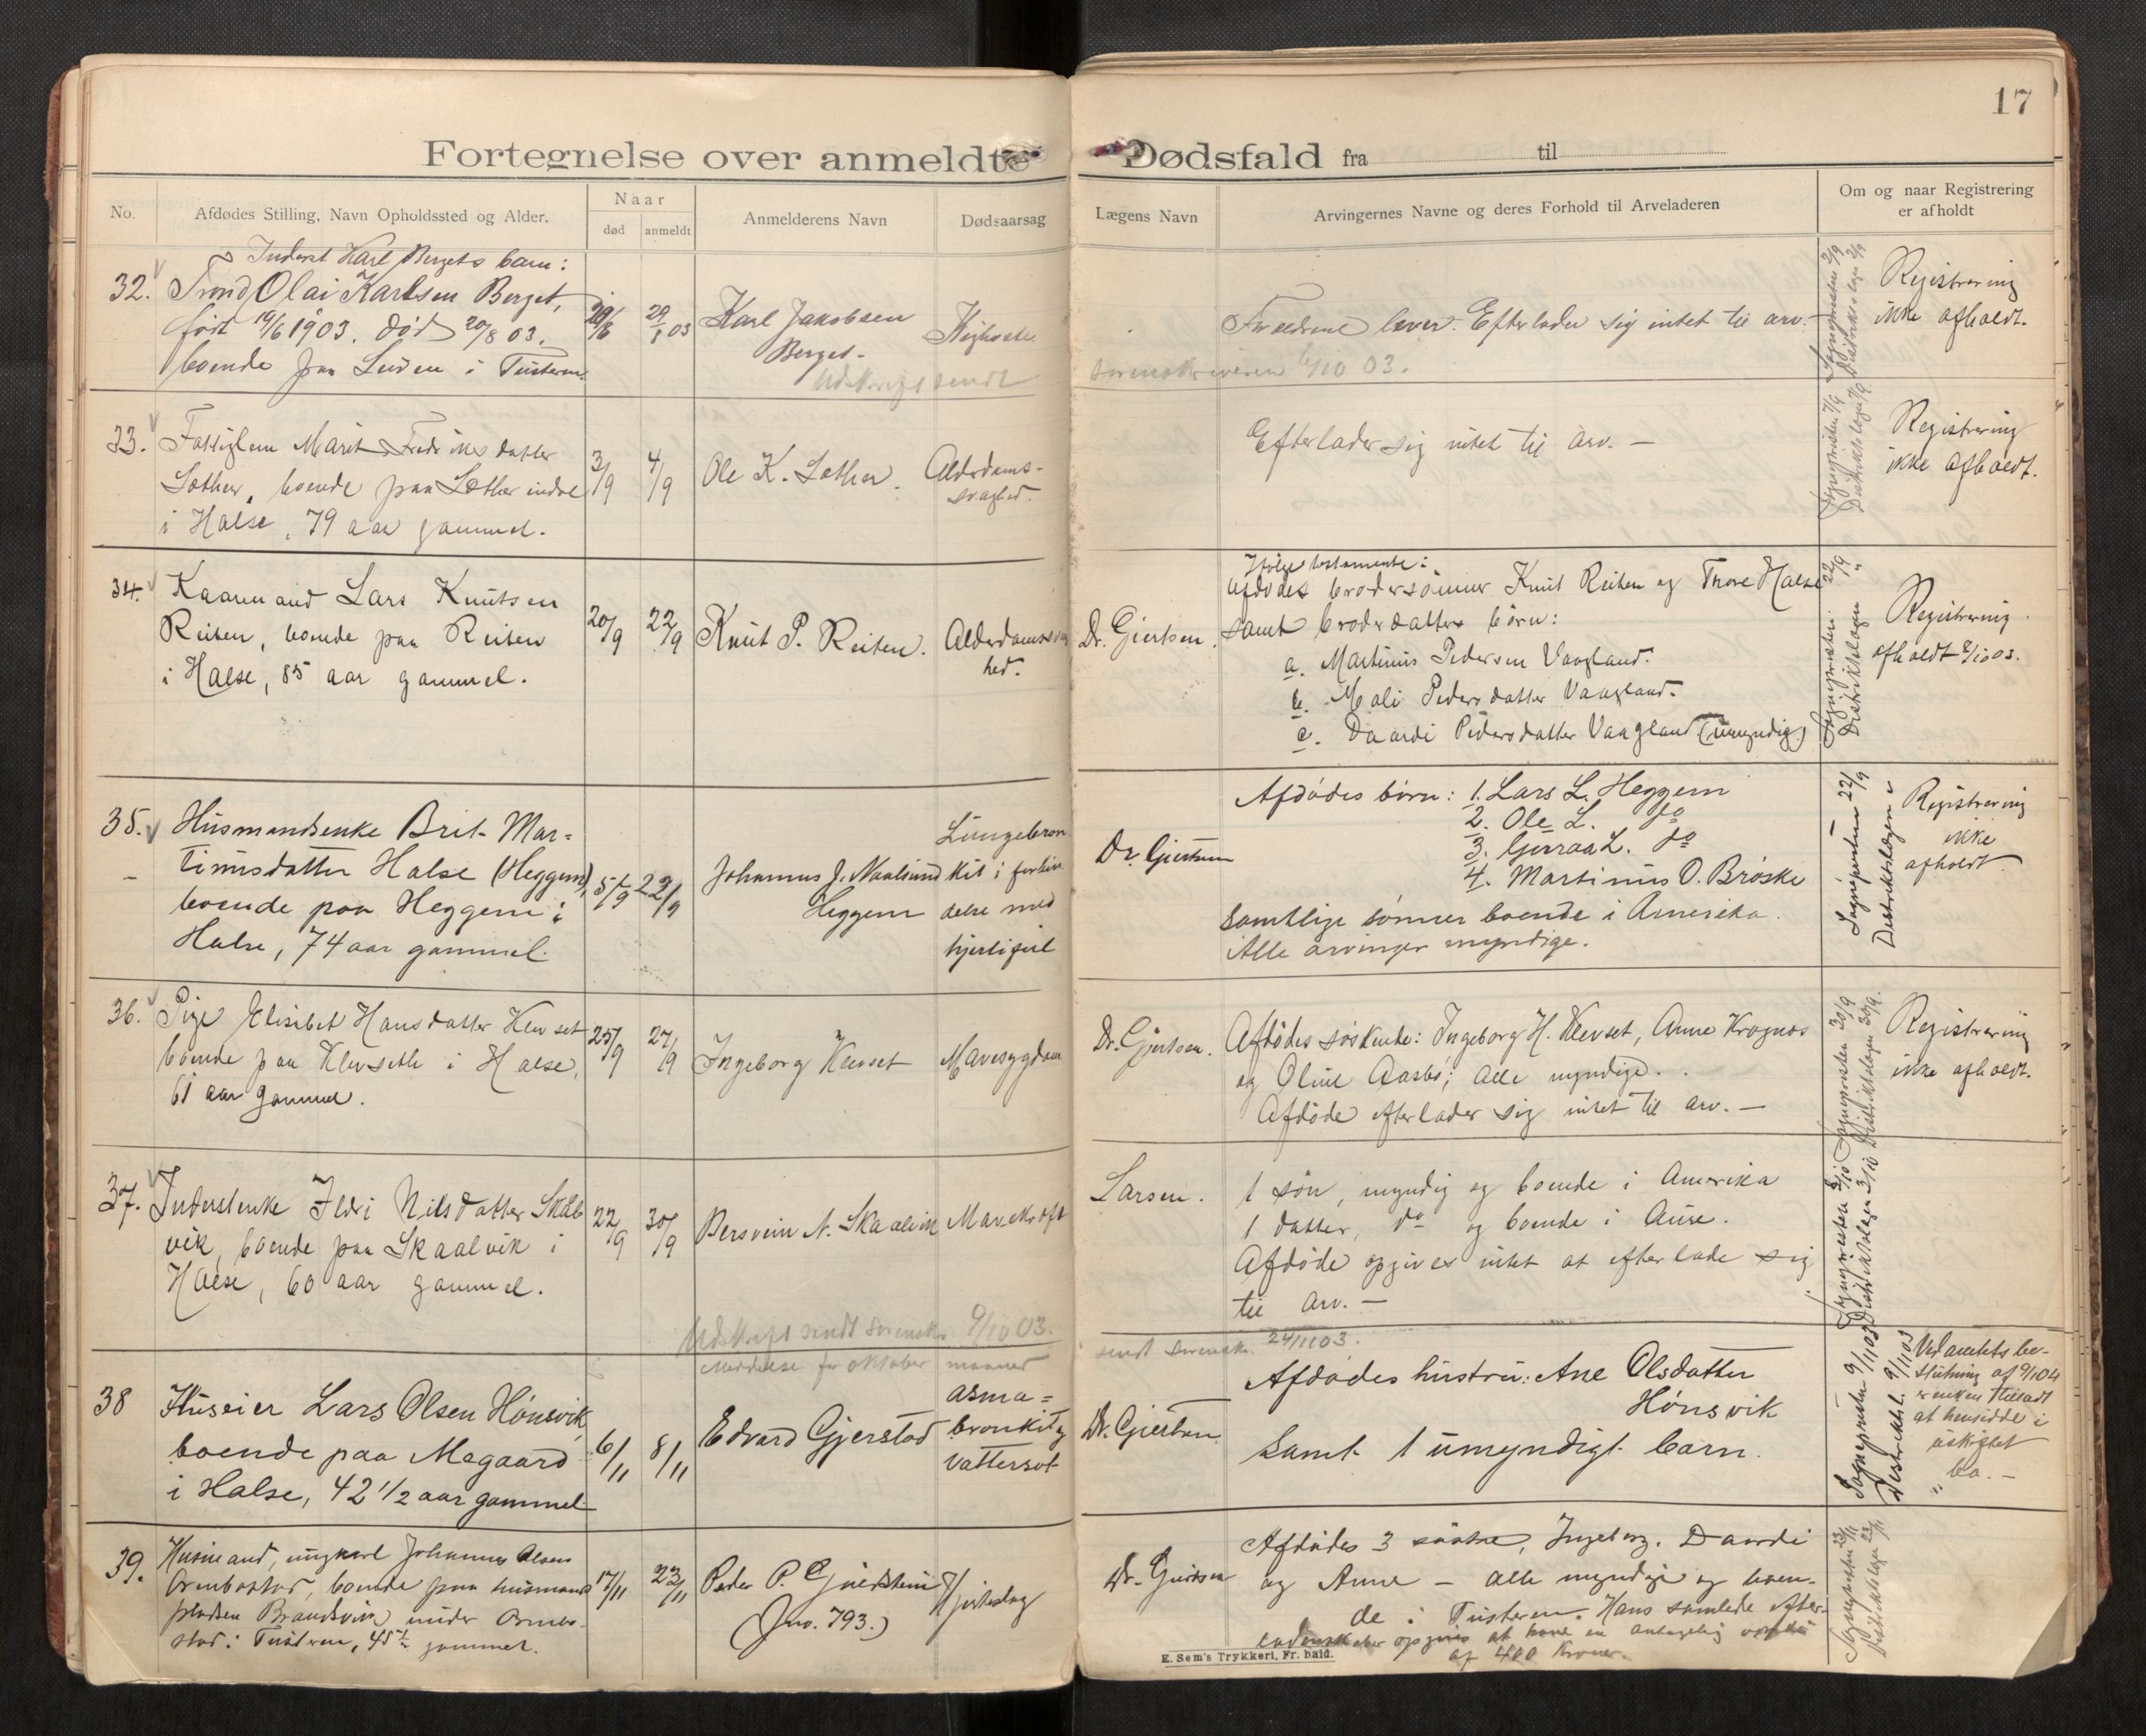 17
Fortegnelse over anmeldte Dødsfald fra til
No.
Afdødes Stilling, Navn Opholdssted og Alder.
Naar
død
anmeldt
Anmelderens Navn
Dødsaarsag
Lægens Navn
Arvingernes Navne og deres Forhold til Arveladeren
Om og naar Registrering
er afholdt
Inderst Karl Bergets barn:
32. Trond Olai Karlsen Berget,
født 14/6 1903. død 20/8 03.
boende paa i Tusteren.
20/8
29/8 03
Karl Jakobsen
Berget.
Kighoste.
Forældrene lever. Efterlader sig intet til arv.
Sognepresten 2/9
Distriktslægen 2/9
Registrering
ikke afholdt.
Udskrift sendt sorenskriveren 6/10 03.
33. Fattiglem Marit Fredriksdatter
Lother, boende paa
i Halse, 79 aar gammel.
3/9
4/9
Ole K. Lother.
Alderdoms-
svaghed.
Efterlader sig intet til arv. —
Sognepresten 7/9
Distriktslægen 7/9
Registrering
ikke afholdt.
34. Kaarmand Lars Knutsen
Reiten, boende paa Reiten
i Halse, 85 aar gammel.
20/9
22/9
Knut P. Reiten.
Alderdomssvag
hed.
Dr. Giertsen.
Ifølge testamente:
Afdødes brodersønner Knut Reiten og Thore Halse
samt broderdatters børn:
a. Martinus Pedersen Vaagland.
b. Mali Pedersdatter Vaagland.
c. Daardi Pedersdatter Vaagland (umyndig)
Sognepresten 22/9
Distriktslægen "
Registrering
afholdt 8/10 03.
35. Husmandsenke Brit Mar=
tinusdatter Halse (Heggem),
boende paa Heggem i
Halse, 74 aar gammel.
15/9
22/9
Johannes J. Naalsund
Heggem
Lungebron
kit i forbin
delse med
hjertefeil
Dr. Giertsen
Afdødes børn: 1. Lars L. Heggem
2. Ole L. do
3. L. do
4. Martinus O. Brøske
Samtlige sønner boende i Amerika.
Alle arvinger myndige.
Sognepresten 22/9
Distriktslægen "
Registrering
ikke
afholdt.
36. Pige Elisebet Hansdatter Klevset
boende paa Klevseth i Halse,
61 aar gammel.
25/9
27/9
Ingeborg Klevset
Mavesygdom
Dr. Giertsen.
Afdødes søskende: Ingeborg H. Klevset, Anne Krognes
og Oline Aasbø; alle myndige.
Afdøde efterlader sig intet til arv. —
Sognepresten 30/9
Distriktslægen 30/9.
Registrering
ikke afholdt.
37. Inderstenke Ildri Nilsdatter Skaal
vik, boende paa Skaalvik i
Halse, 60 aar gammel.
22/9
30/9
Bersvein N. Skaalvik
Mavekræft
Larsen.
1 søn, myndig og boende i Amerika
1 datter, do og boende i Aure.
Afdøde opgives intet at efterlade sig
til arv. —
Sognepresten 3/10
Distriktslægen 3/10
Udskrift sendt sorenskr. 6/10 03.
Meddelelse for oktober maaned sendt sorenskr. 24/11 03.
38 Huseier Lars Olsen Hønsvik,
boende paa Megaard
i Halse, 42 1/2 aar gammel
6/11
8/11
Edvard Gjerstad
asma=
bronkit og
vattersot
Dr. Giertsen
Afdødes hustru: Ane Olsdatter
Hønsvik
Samt 1 umyndigt barn.
Sognepresten 9/11 03
Distriktsl. 9/11 03
Ved amtets be-
slutning af 9/1 04
er enken tilladt
at hensidde i
uskiftet
bo. —
39. Husmand, ungkarl Johannes Olsen
Ormbostad, boende paa husmands
pladsen Brandsvik under Ormbo-
stad i Tusteren, 45 1/2 gammel.
17/11
23/11
Peder P. Gjerdstein
(Jno. 793.)
Hjerteslag
Dr. Giertsen
Afdødes 3 søstre, Ingeborg, Daardi
og Anne — alle myndige og boen-
de i Tusteren. Hans samlede efter-
ladenskaber opgives at have en antagelig værdi
af 400 kroner.
Sognepresten 23/11
Distriktslægen 23/11
E. Sem's Trykkeri, Fr. hald.